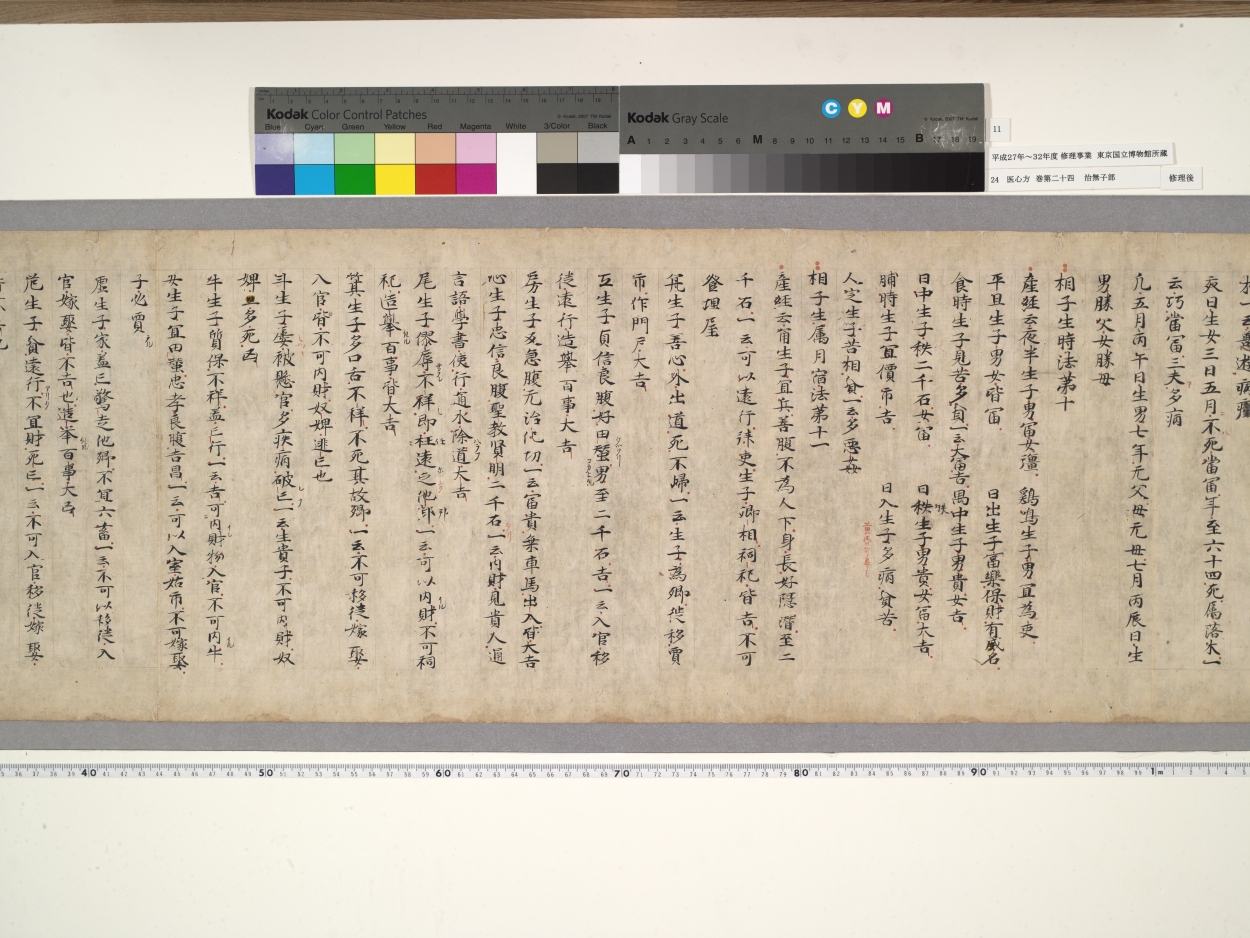 Kodak Color Control Patches
Blue Cyan Green Yellow Red Magenta White 3/Color Black
Kodak Gray Scale
C Y M
A 1 2 3 4 5 6 M 8 9 10 11 12 13 14 15 B 17 18 19
11
平成27年～32年度 修理事業 東京国立博物館所蔵
24 医心方 巻第二十四 治無子部
修理後
亥日生女三日五月不死當富年至六十四死属落朱一
云巧當富三夫多病
凡五月丙午日生男七年无父母无母七月丙辰日生
男勝父女勝母
相子生時法第十
産經云夜半生子男富女彊 鷄鳴生子男宜為吏
平旦生子男女皆富 日出生子富樂保財有威名
食時生子見苦多負一云大富吉禺中生子男貴女吉
日中生子秩二千石女富 日秩生子男貴女富大吉
脯時生子宜價市吉 日入生子多病貧苦
人定生子苦相貧一云多惡姦
相子生属月宿法第十一
産經云角生子宜兵善腹不為人下身長好隠潛至二
千石一云可以遠行諫吏生子卿相祠祀皆吉不可
登埋屋
亢生子善心外出道死不歸一云生子為卿徙移賈
市作門戸大吉
互生子貞信良腹好田蟹男至二千石吉一云入官移
徙遠行造舉百事大吉
房生子反急腹无治他切一云富貴乗車馬出入皆大吉
心生子忠信良腹聖教賢明二千石一云内財見貴人通
言語學書使行道水除道大吉
尾生子僇辱不祥即枉遠之他郡一云可以内財不可祠
祀造舉百事皆大吉
箕生子多口舌不祥不死其故郷一云不可移徙嫁娶
入官皆不可内財奴婢逃亡也
斗生子屡被懸官多疾病破亡一云生貴子不可内財奴
婢且多死凶
牛生子質保不祥盗亡行一云吉可内財物入官不可内牛
女生子宜田蚕忠孝良腹吉昌一云可以入室始市不可嫁娶
子必賈
虚生子家盖亡驚走他郷不宜六畜一云不可以移徙入
官嫁娶皆不吉也造舉百事大凶
危生子貧遠行不宜財死亡一云不可入官移徙嫁娶
40 50 60 70 80 90 1m